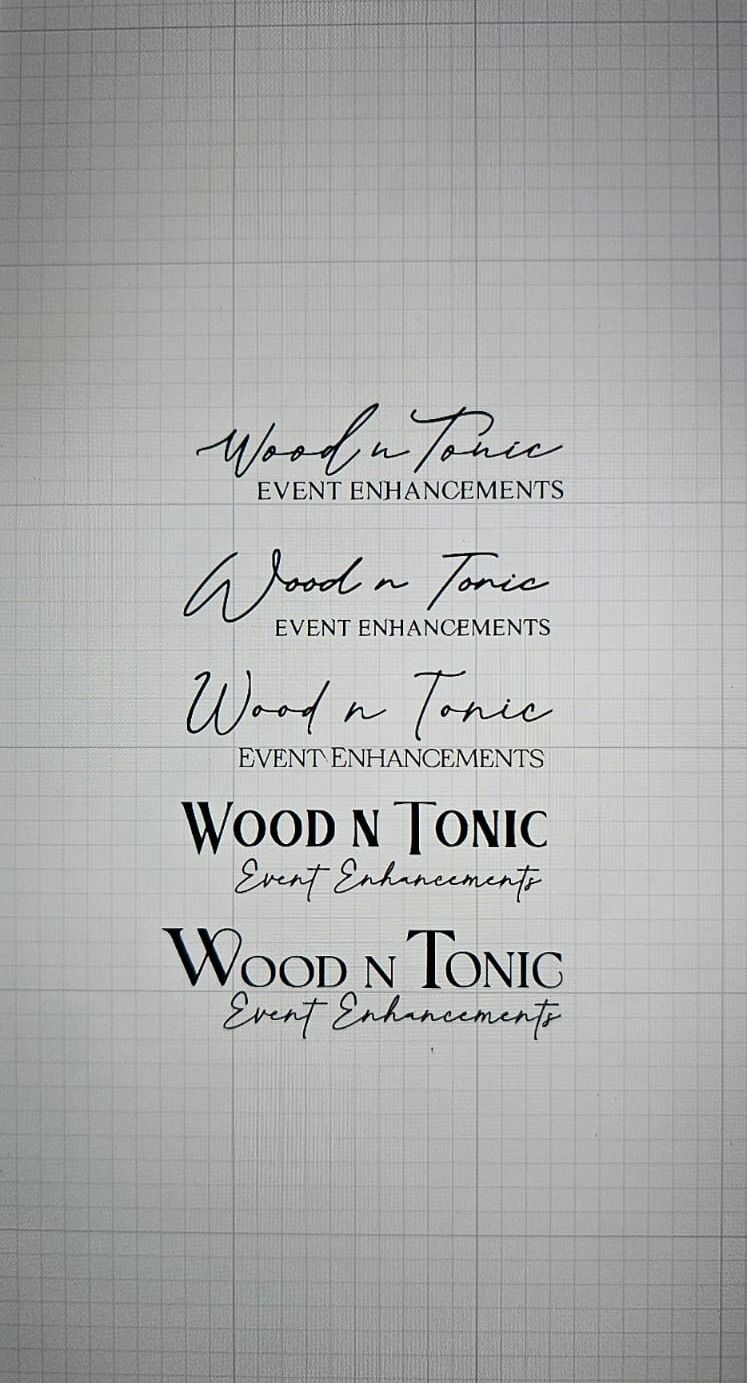 Wood n Tonic
EVENT ENHANCEMENTS
Wood n Tonic
EVENT ENHANCEMENTS
Wood n Tonic
EVENT ENHANCEMENTS
WOOD N TONIC
Event Enhancements
WOOD N TONIC
Event Enhancements